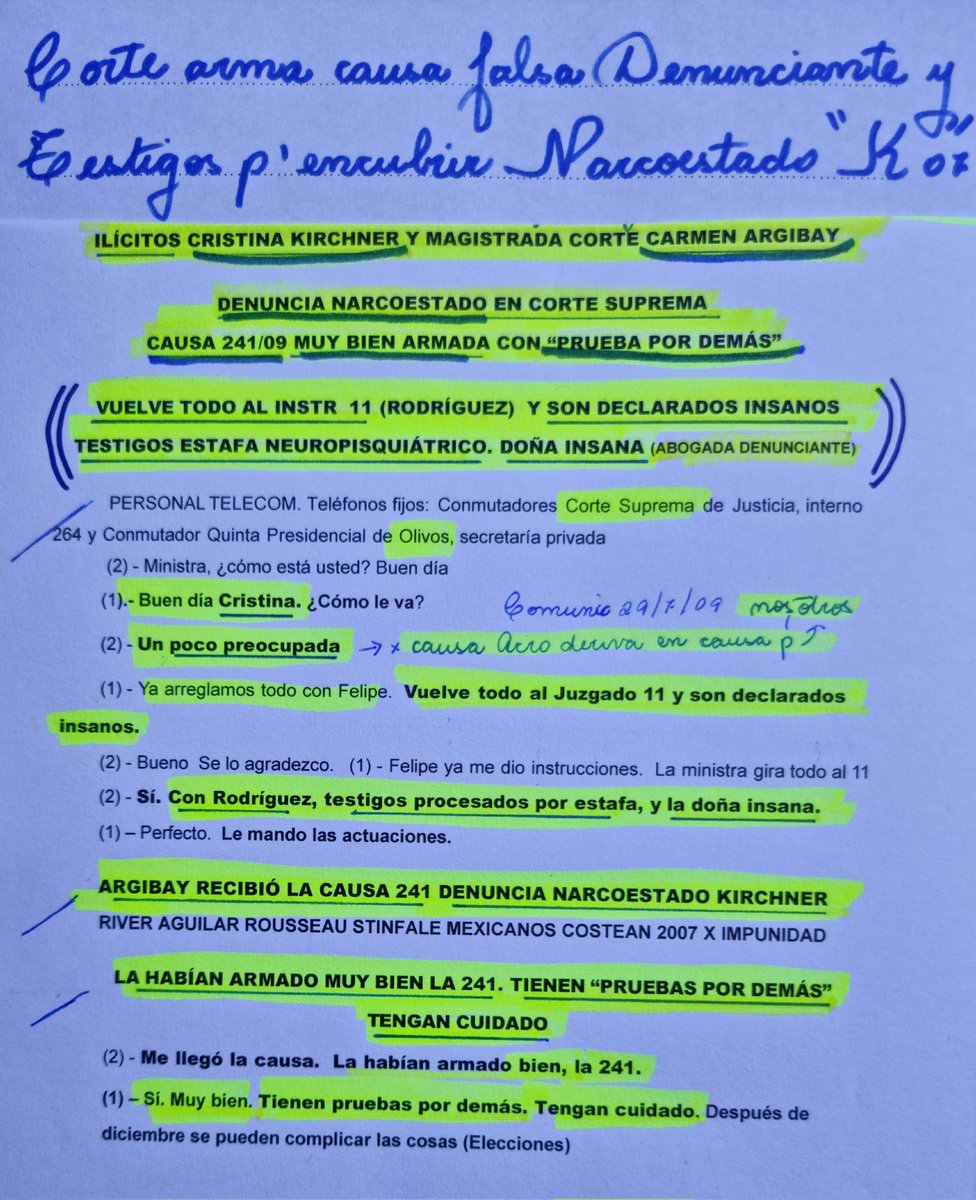 Corte arma causa falsa Denunciante y
Testigos p' encubrir Narcoestado "K"
ILÍCITOS CRISTINA KIRCHNER Y MAGISTRADA CORTE CARMEN ARGIBAY
DENUNCIA NARCOESTADO EN CORTE SUPREMA
CAUSA 241/09 MUY BIEN ARMADA CON "PRUEBA POR DEMÁS"
VUELVE TODO AL INSTR 11 (RODRÍGUEZ) Y SON DECLARADOS INSANOS
TESTIGOS ESTAFA NEUROPISQUIÁTRICO. DOÑA INSANA (ABOGADA DENUNCIANTE)
PERSONAL TELECOM. Teléfonos fijos: Conmutadores Corte Suprema de Justicia, interno
264 y Conmutador Quinta Presidencial de Olivos, secretaría privada
(2) - Ministra, ¿cómo está usted? Buen día
(1).- Buen día Cristina. ¿Cómo le va?
Comunic 29/7/09 nosotros
(2) - Un poco preocupada → x causa Acro deriva en causa p
(1) - Ya arreglamos todo con Felipe. Vuelve todo al Juzgado 11 y son declarados
insanos.
(2) - Bueno Se lo agradezco. (1) - Felipe ya me dio instrucciones. La ministra gira todo al 11
(2) - Sí. Con Rodríguez, testigos procesados por estafa, y la doña insana.
(1) – Perfecto. Le mando las actuaciones.
ARGIBAY RECIBIÓ LA CAUSA 241 DENUNCIA NARCOESTADO KIRCHNER
RIVER AGUILAR ROUSSEAU STINFALE MEXICANOS COSTEAN 2007 X IMPUNIDAD
LA HABÍAN ARMADO MUY BIEN LA 241. TIENEN "PRUEBAS POR DEMÁS"
TENGAN CUIDADO
(2) - Me llegó la causa. La habían armado bien, la 241.
(1) – Sí. Muy bien. Tienen pruebas por demás. Tengan cuidado. Después de
diciembre se pueden complicar las cosas (Elecciones)